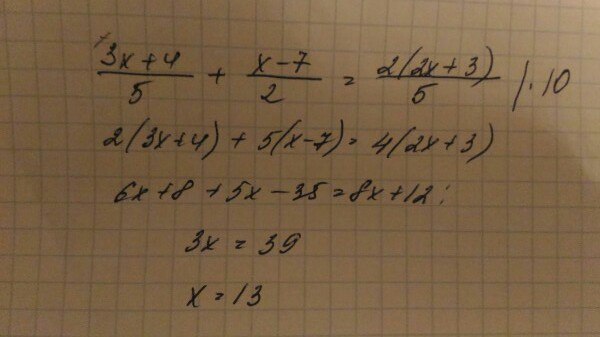 (3x+4)/5 + (x-7)/2 = 2(2x+3)/5 /·10
2(3x+4) + 5(x-7) = 4(2x+3)
6x+8+5x-35=8x+12;
3x = 39
x = 13